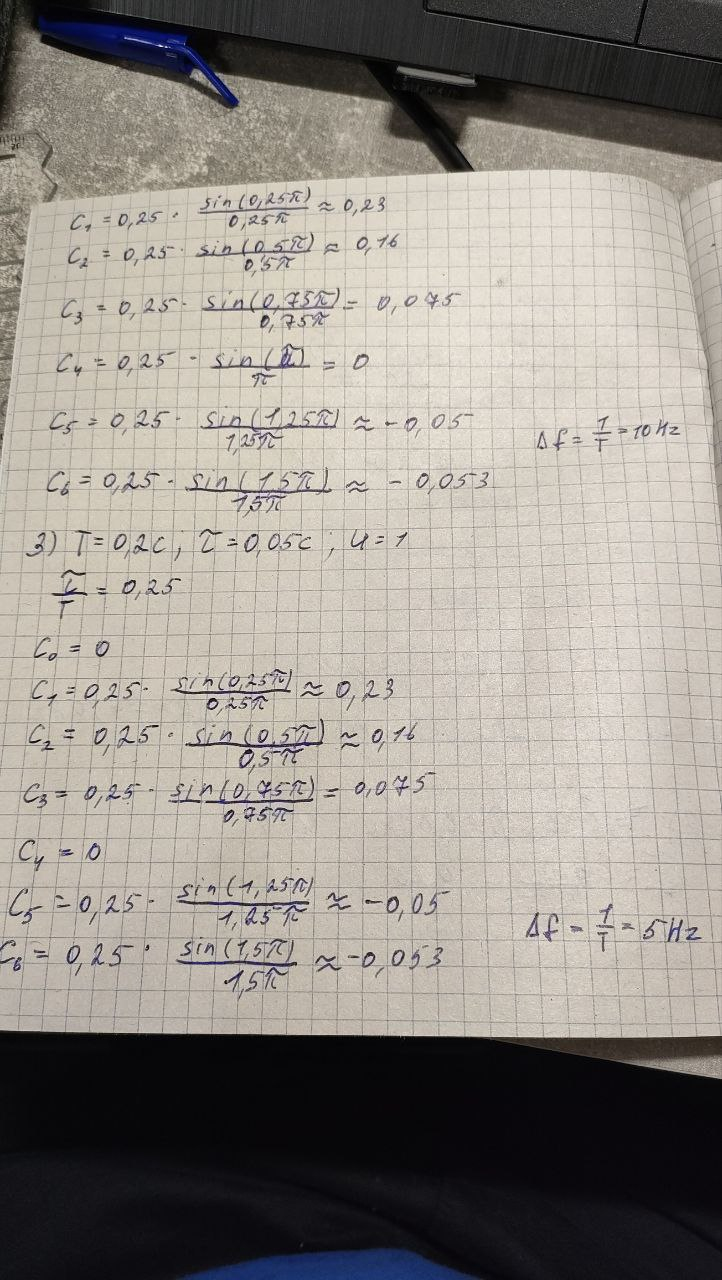 C₁ = 0,25 · sin(0,25π)/0,25π ≈ 0,23
C₂ = 0,25 · sin(0,5π)/0,5π ≈ 0,16
C₃ = 0,25 · sin(0,75π)/0,75π = 0,075
C₄ = 0,25 · sin(π)/π = 0
C₅ = 0,25 · sin(1,25π)/1,25π ≈ -0,05
Δf = 1/T = 10Hz
C₆ = 0,25 · sin(1,5π)/1,5π ≈ -0,053
3) T=0,2c; τ=0,05c; U=1
τ/T = 0,25
C₀ = 0
C₁ = 0,25 · sin(0,25π)/0,25π ≈ 0,23
C₂ = 0,25 · sin(0,5π)/0,5π ≈ 0,16
C₃ = 0,25 · sin(0,75π)/0,75π = 0,075
C₄ = 0
C₅ = 0,25 · sin(1,25π)/1,25π ≈ -0,05
Δf = 1/T = 5Hz
C₆ = 0,25 · sin(1,5π)/1,5π ≈ -0,053